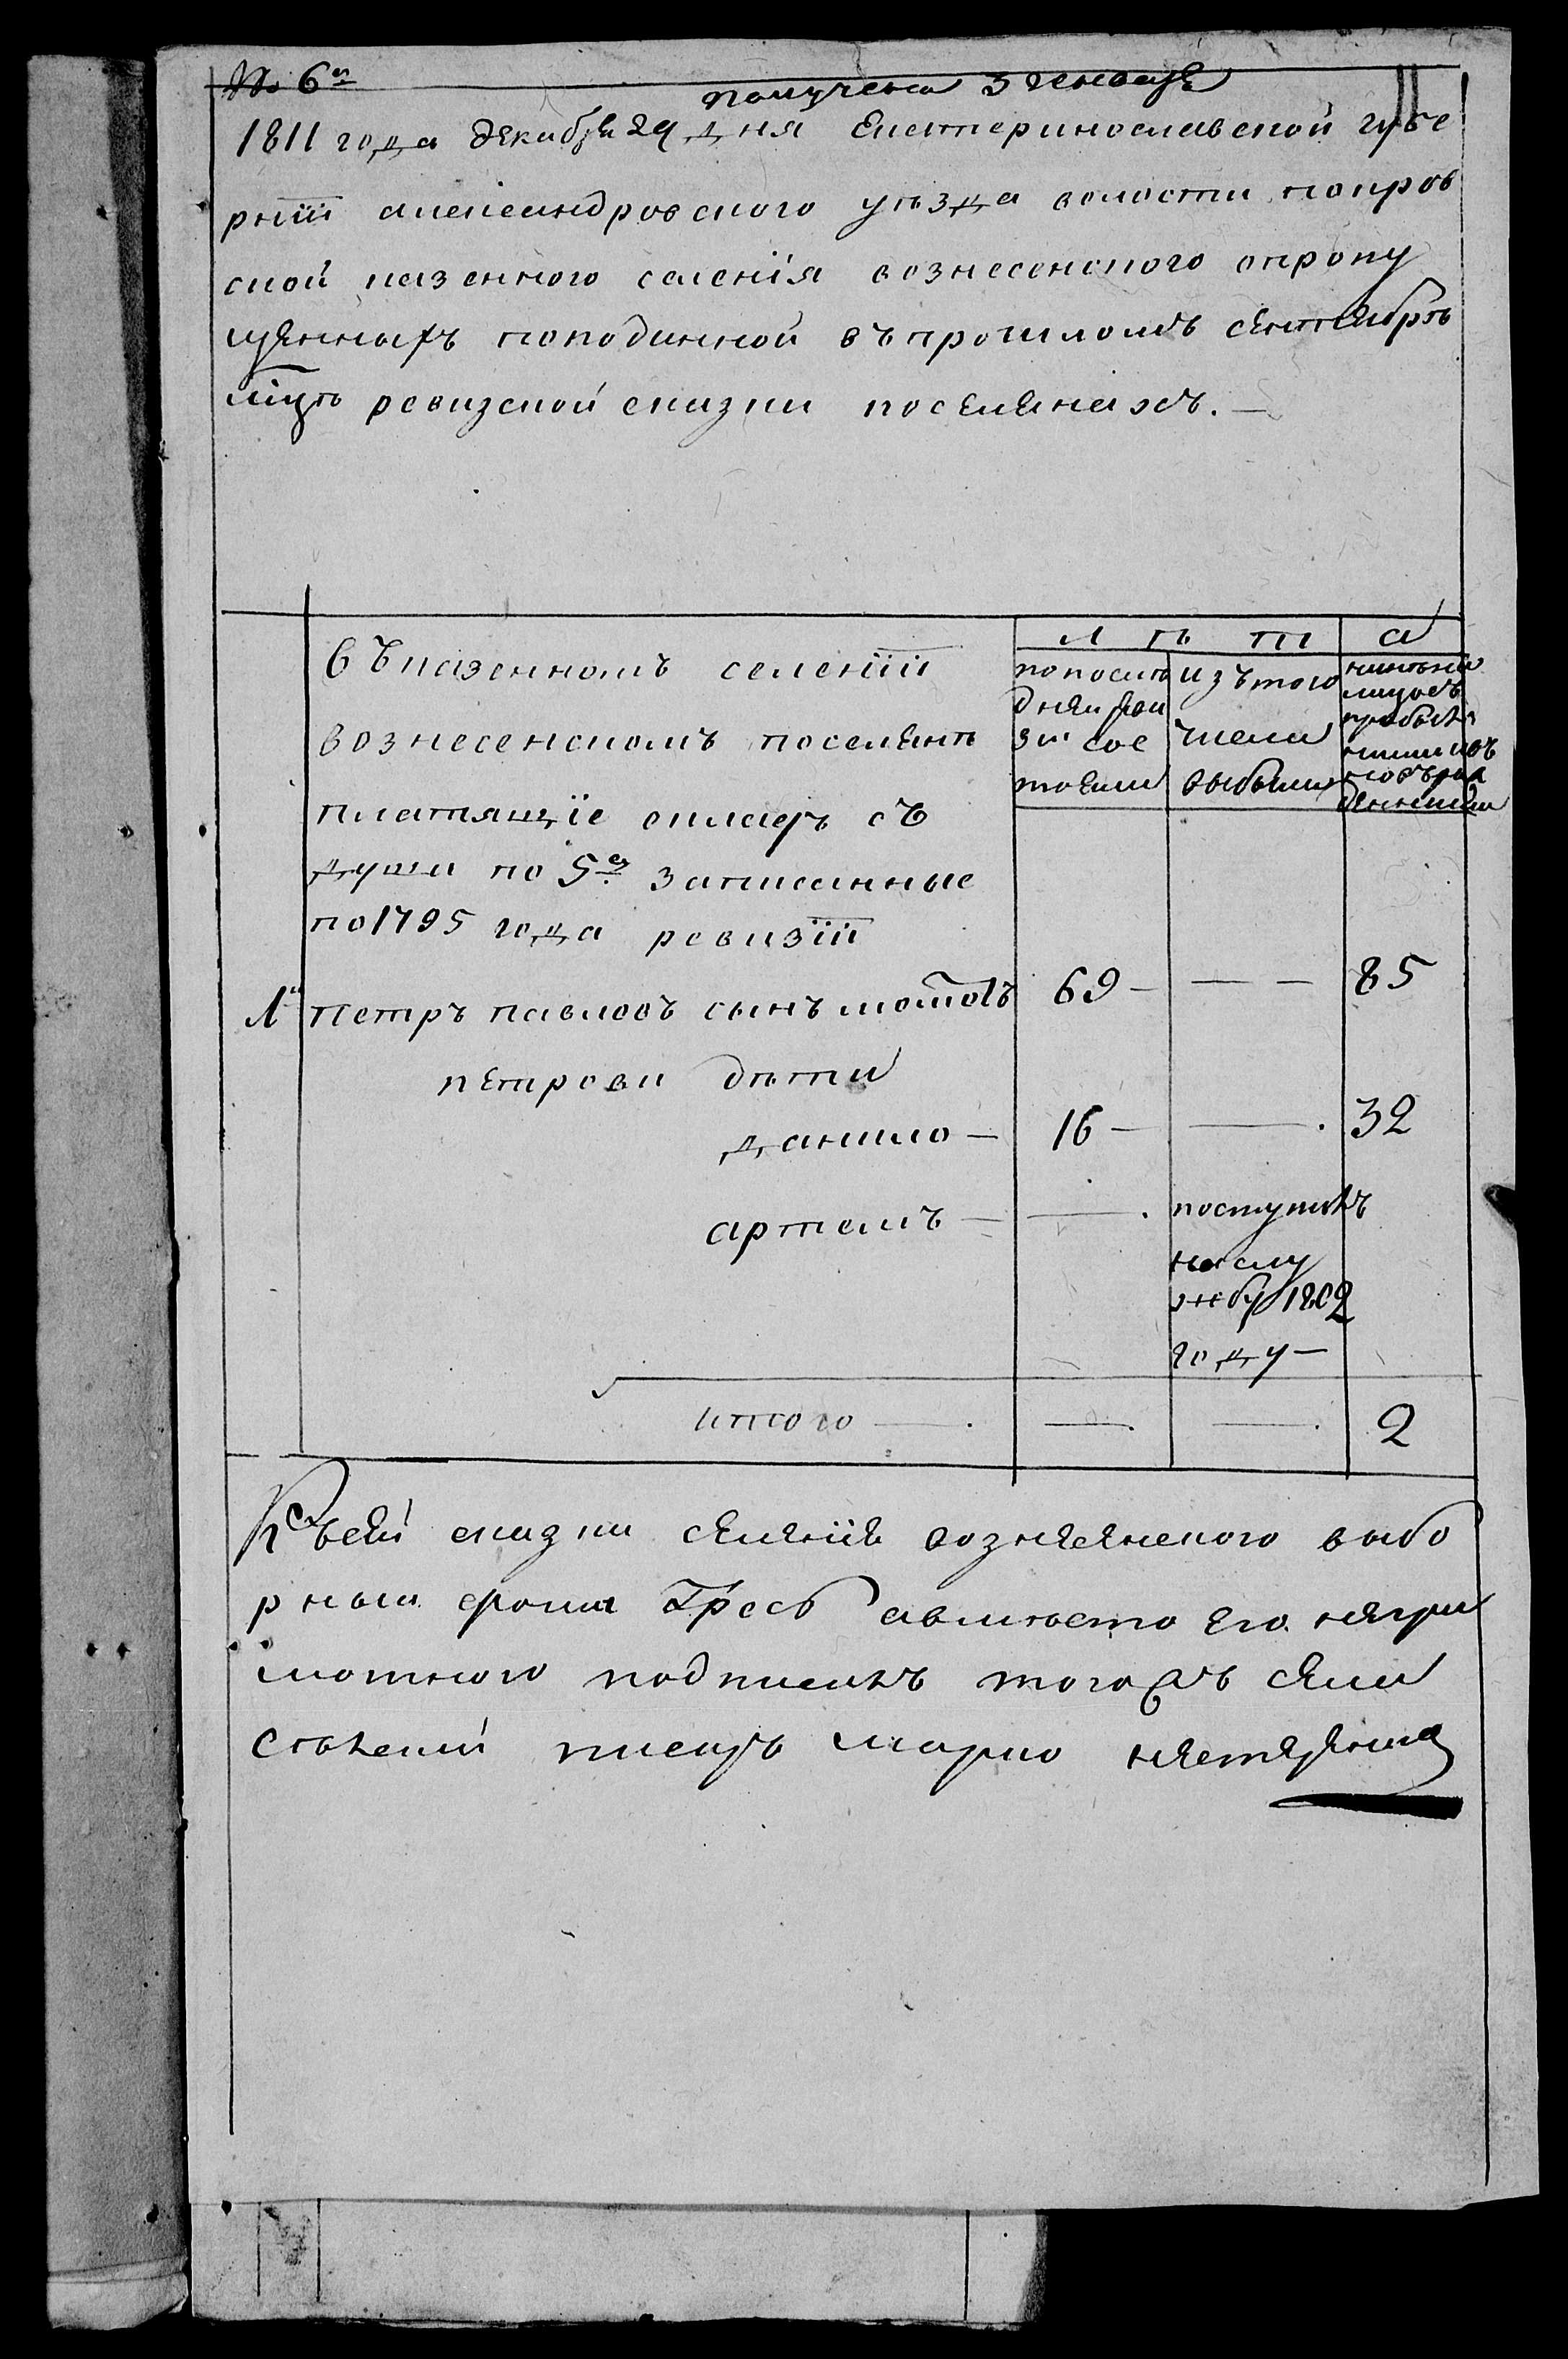 № 6й
получена 3 генваря
11
1811 года декабря 29 дня Екатеринославской губе
рніи александровского уѣзда волости покров
ской казенного селенія вознесенского опропу
щенныхъ поподанной въ прошломъ сентябрѣ
мцѣ ревизской сказки поселянахъ. —
Л Ѣ Т А
въ казенномъ селеніи
вознесенскомъ поселянѣ
платящіе окладъ съ
души по 5й записанные
по 1795 года ревизіи
попослѣ
дней реви
зіи сос
тояли
изъ того
числа
выбыли
нынѣ на
лицо съ
прибыв
шими и съ
новорож
денными
1й петръ павловъ сынъ 69 — — — 85
петрови дѣти
данило — 16 — — . 32
артемъ — — . поступилъ
на слу
жбу 1802
году —
итого — . — . — . 2
Ксъей сказки селенія вознесенского выбо
рный фома авмѣсто его негра
мотного подписалъ тогожъ села
сельскій писарь марко